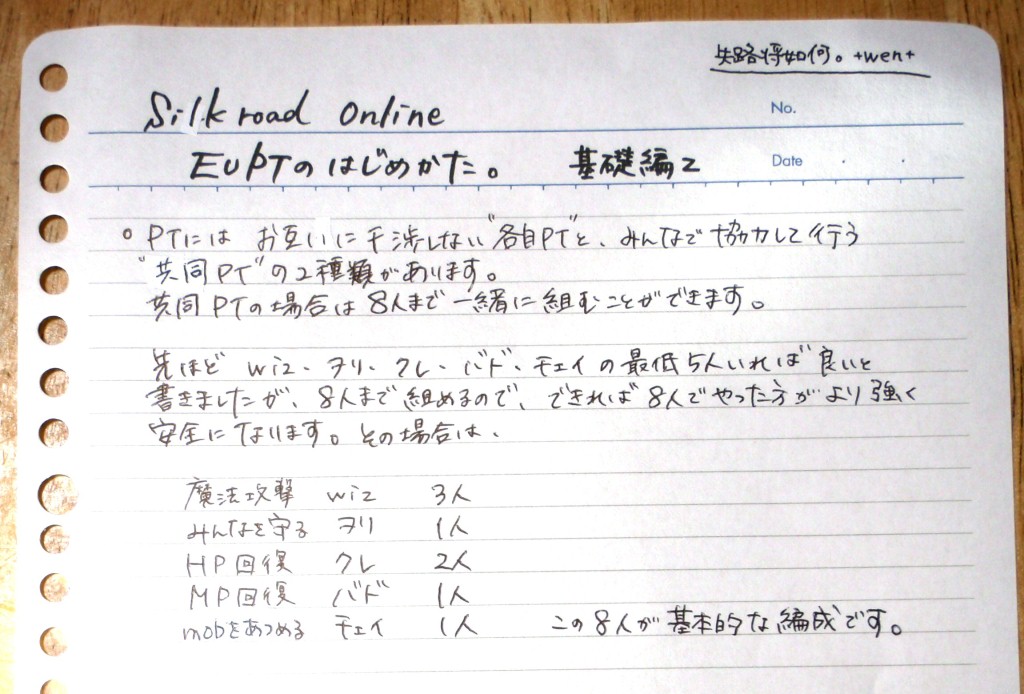 失路将如何。+wen+
Silkroad Online
No.
EUPTのはじめかた。 基礎編2
Date
○ PTには お互いに干渉しない"各自PT"と、みんなで協力して行う
"共同PT"の2種類があります。
共同PTの場合は8人まで一緒に組むことができます。
先ほど wiz・ヲリ・クレ・バド・チェイの最低5人いれば良いと
書きましたが、8人まで組めるので、できれば8人でやった方がより強く
安全になります。その場合は、
魔法攻撃 wiz 3人
みんなを守る ヲリ 1人
HP回復 クレ 2人
MP回復 バド 1人
mobをあつめる チェイ 1人 この8人が基本的な編成です。